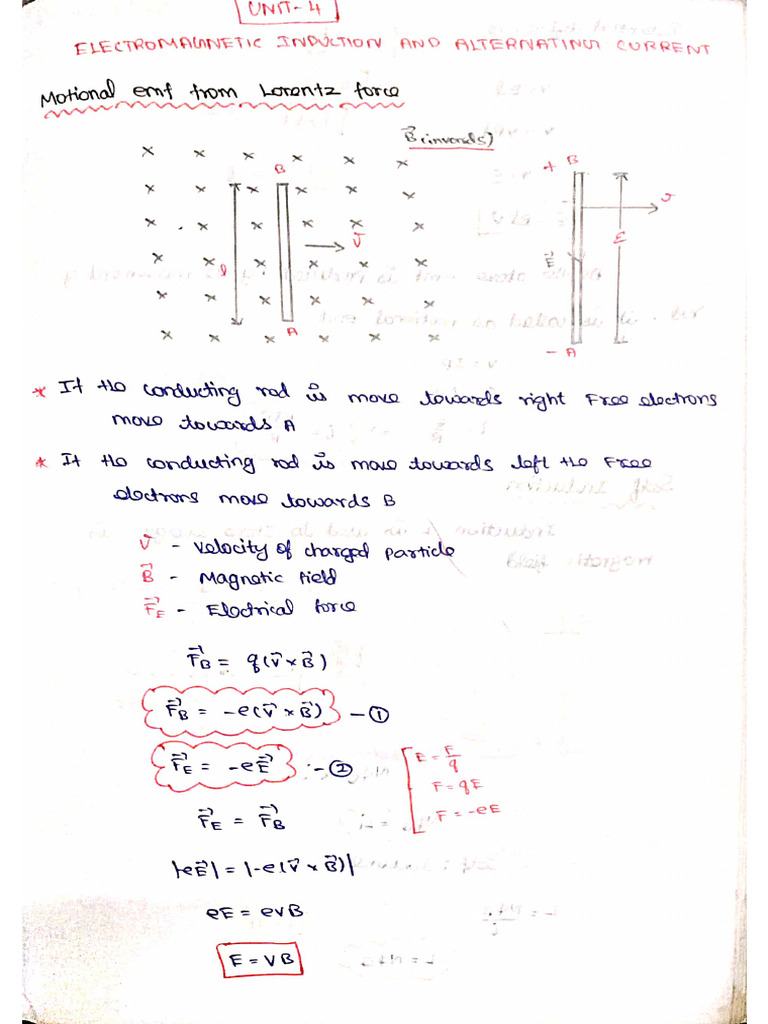 UNIT-4
ELECTROMAGNETIC INDUCTION AND ALTERNATING CURRENT
Motional emf from Lorentz force
B⃗ (inwards)
B
l
v⃗
A
+ B
v
E
E⃗
- A
* If the conducting rod is move towards right Free electrons
move towards A
* If the conducting rod is move towards left the Free
electrons move towards B
v⃗ - velocity of charged particle
B⃗ - Magnetic field
F⃗E - Electrical force
F⃗B = q(v⃗ × B⃗)
F⃗B = -e(v⃗ × B⃗) - ①
F⃗E = -eE⃗ :- ②
E = F/q
F = qE
F = -eE
F⃗E = F⃗B
|-eE⃗| = |-e(v⃗ × B⃗)|
eE = evB
E = VB